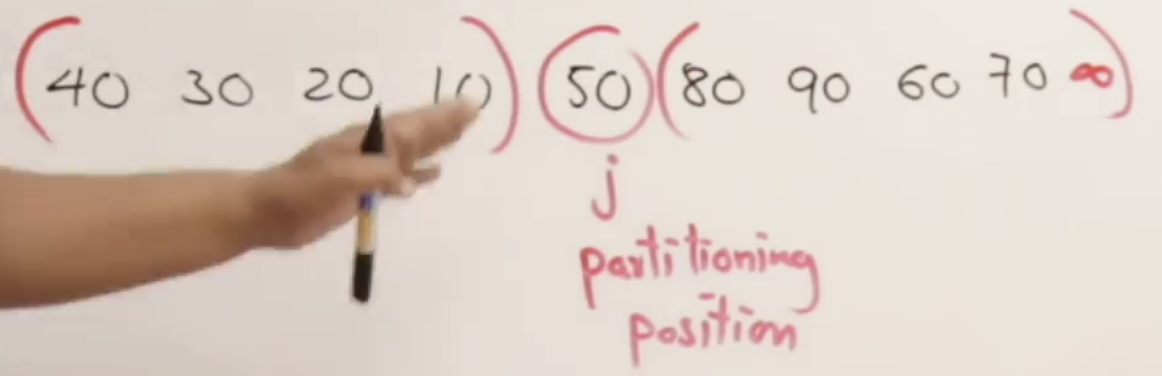 (40 30 20 10) 50 (80 90 60 70 ∞)
j
partitioning
position